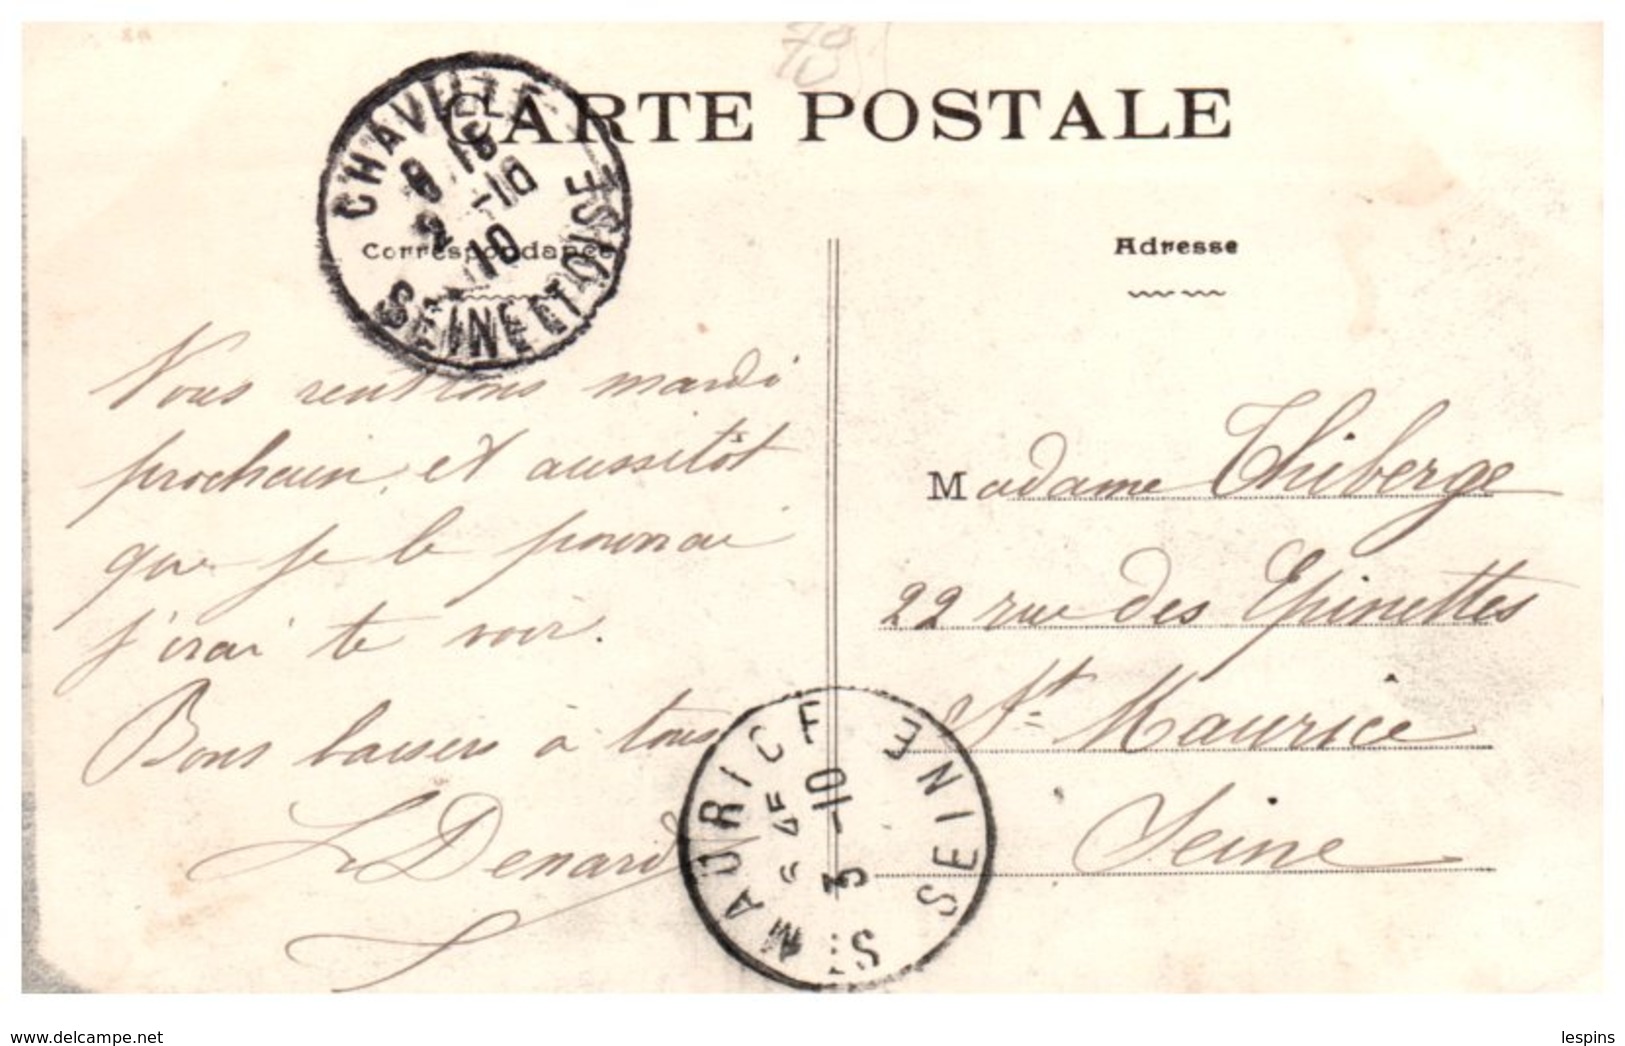 CARTE POSTALE
CHAVILLE
8 15
2 -10
10
SEINE ET OISE
Correspondance
Adresse
Nous rentrons mardi
prochain, et aussitôt
que je le pourrai
j'irai te voir.
Bons baisers à tous
L Denard
Madame Thiberge
22 rue des Epinettes
St Maurice
Seine
ST MAURICE SEINE
6 45
3 -10
www.delcampe.net
lespins